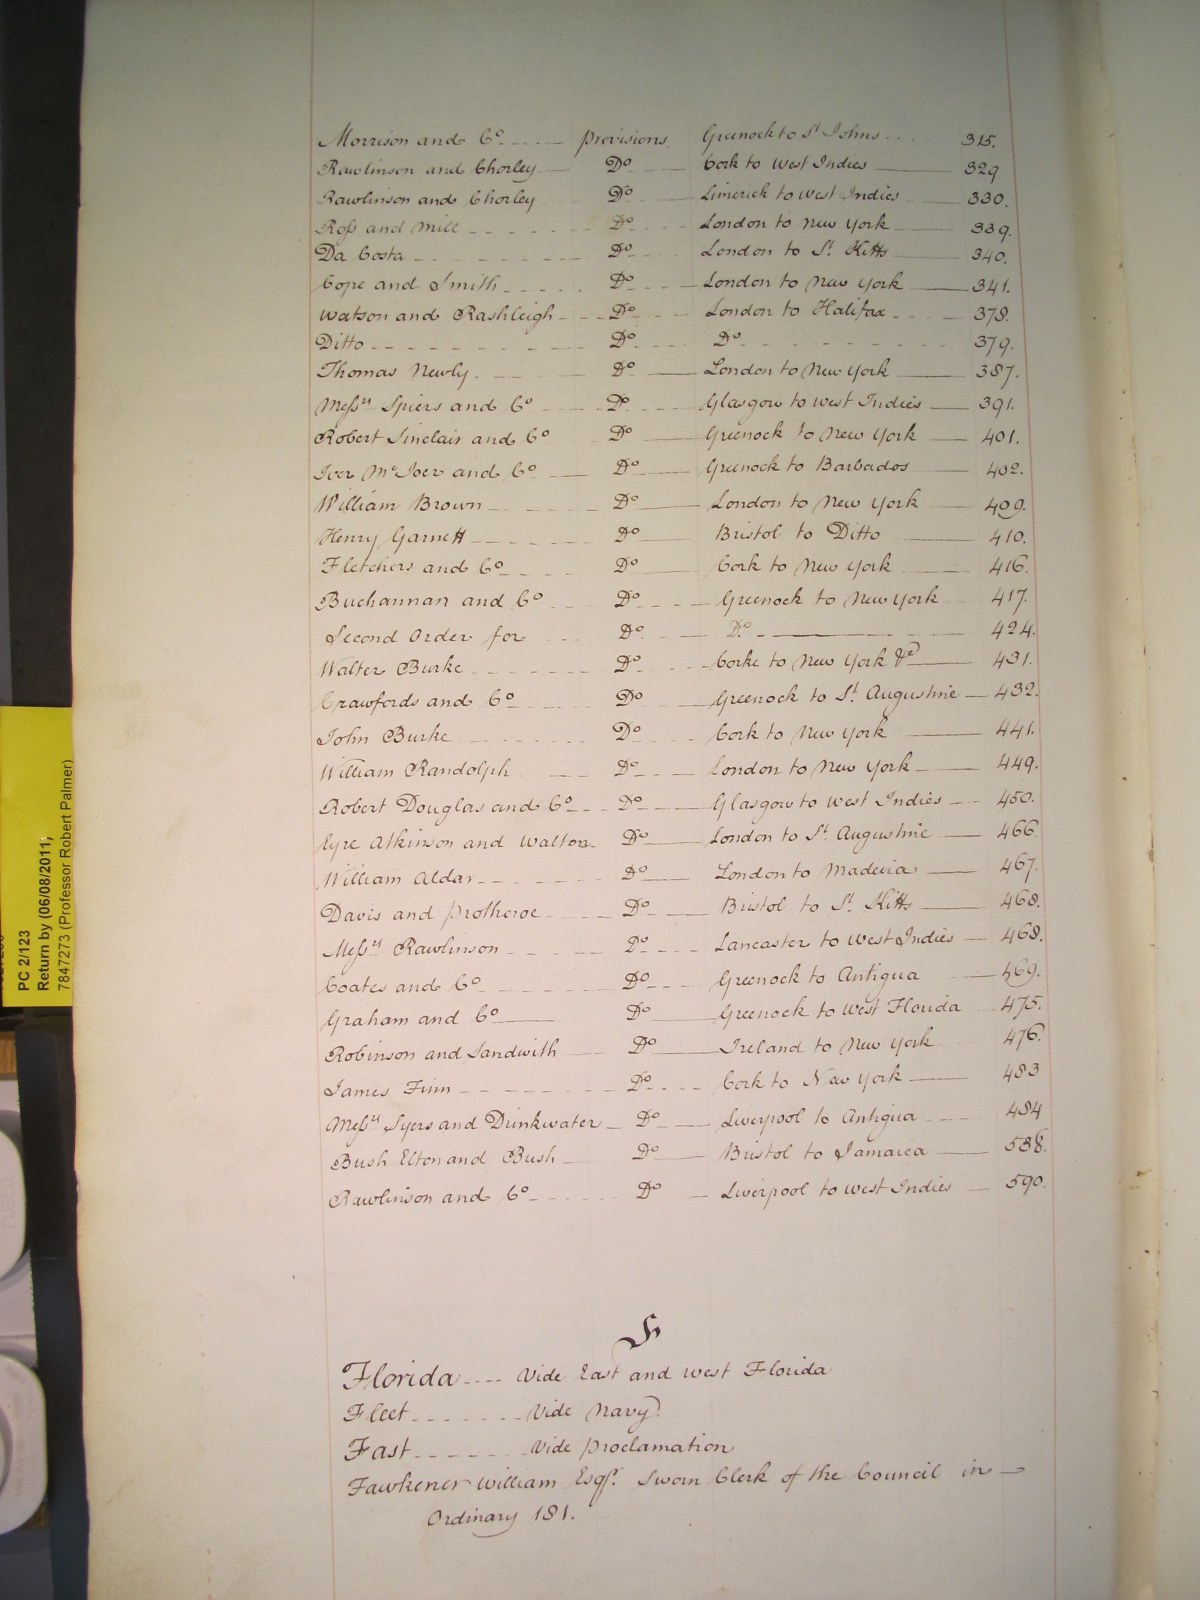 Morrison and Co. provisions Greenock to St Johns 315.
Rawlinson and Chorley Do Cork to West Indies 329
Rawlinson and Chorley Do Limerick to West Indies 330.
Ross and Mill Do London to New York 339.
Da Costa Do London to St Kitts 340.
Cope and Smith Do London to New York 341.
Watson and Rashleigh Do London to Halifax 378.
Ditto Do Do 379.
Thomas Newly Do London to New York 387.
Messrs Spiers and Co Do Glasgow to West Indies 391.
Robert Sinclair and Co Do Greenock to New York 401.
Iver McIver and Co Do Greenock to Barbados 402.
William Brown Do London to New York 409.
Henry Garnett Do Bristol to Ditto 410.
Fletchers and Co Do Cork to New York 416.
Buchannan and Co Do Greenock to New York 417.
Second Order for Do Do 424.
Walter Burke Do Corke to New York &c 431.
Crawfords and Co Do Greenock to St Augustine 432.
John Burke Do Cork to New York 441.
William Randolph Do London to New York 449.
Robert Douglas and Co Do Glasgow to West Indies 450.
Eyre Atkinson and Walton Do London to St Augustine 466.
William Aldar Do London to Madeira 467.
Davis and Protheroe Do Bristol to St Kitts 468.
Messrs Rawlinson Do Lancaster to West Indies 468.
Coates and Co Do Greenock to Antigua 469.
Graham and Co Do Greenock to West Florida 475.
Robinson and Sandwith Do Ireland to New York 476.
James Finn Do Cork to New York 483
Messrs Syers and Drinkwater Do Liverpool to Antigua 484
Bush Elton and Bush Do Bristol to Jamaica 538.
Rawlinson and Co Do Liverpool to West Indies 590.
F
Florida Vide East and West Florida
Fleet Vide Navy
Fast Vide Proclamation
Fawkener William Esqr. Sworn Clerk of the Council in
Ordinary 181.
PC 2/123
Return by (06/08/2011;
7847273 (Professor Robert Palmer)